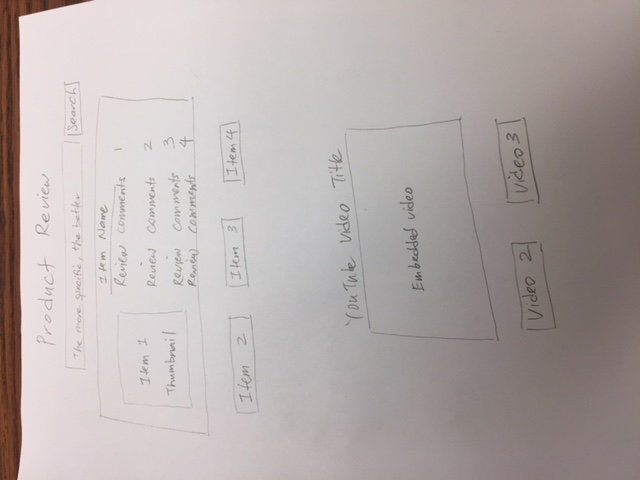 Product Review
The more specific, the better Search
Item Name
Item 1
Thumbnail
Review Comments 1
Review Comments 2
Review Comments 3
Review Comments 4
Item 2 Item 3 Item 4
YouTube Video Title
Embedded video
Video 2 Video 3